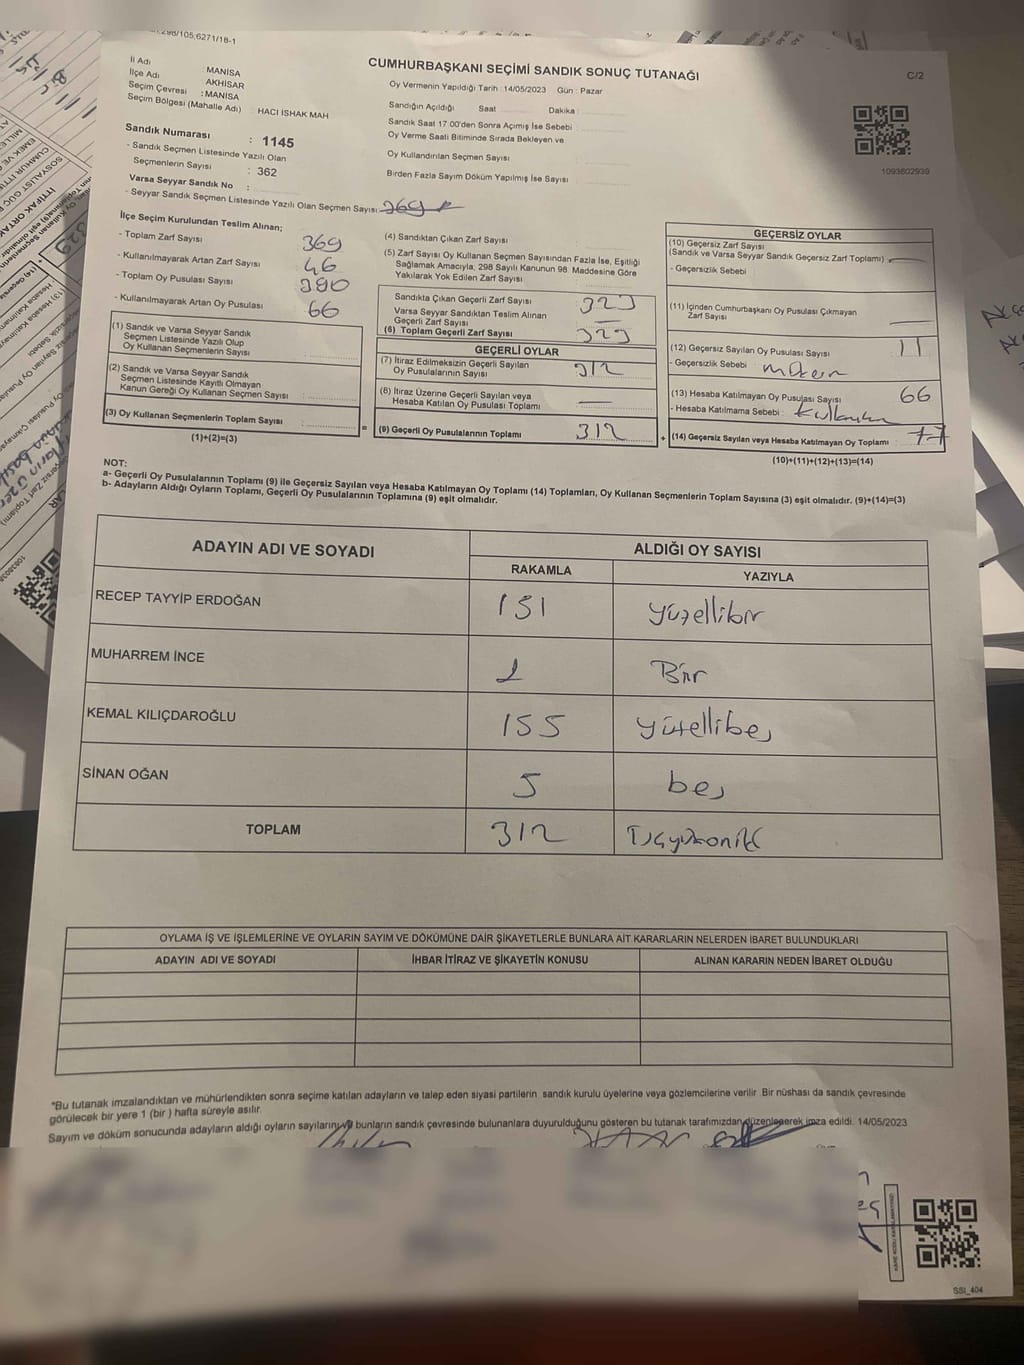 298/105,6271/18-1
CUMHURBAŞKANI SEÇİMİ SANDIK SONUÇ TUTANAĞI
C/2
İl Adı : MANİSA
İlçe Adı : AKHİSAR
Seçim Çevresi : MANİSA
Seçim Bölgesi (Mahalle Adı) : HACI İSHAK MAH
Sandık Numarası : 1145
- Sandık Seçmen Listesinde Yazılı Olan
Seçmenlerin Sayısı : 362
Varsa Seyyar Sandık No :
- Seyyar Sandık Seçmen Listesinde Yazılı Olan Seçmen Sayısı: 369
Oy Vermenin Yapıldığı Tarih : 14/05/2023 Gün : Pazar
Sandığın Açıldığı Saat Dakika :
Sandık Saat 17.00'den Sonra Açımış İse Sebebi :
Oy Verme Saati Bitiminde Sırada Bekleyen ve
Oy Kullandırılan Seçmen Sayısı
Birden Fazla Sayım Döküm Yapılmış İse Sayısı
1093802939
İlçe Seçim Kurulundan Teslim Alınan;
- Toplam Zarf Sayısı 369
- Kullanılmayarak Artan Zarf Sayısı 46
- Toplam Oy Pusulası Sayısı 390
- Kullanılmayarak Artan Oy Pusulası 66
(1) Sandık ve Varsa Seyyar Sandık
Seçmen Listesinde Yazılı Olup
Oy Kullanan Seçmenlerin Sayısı
(2) Sandık ve Varsa Seyyar Sandık
Seçmen Listesinde Kayıtlı Olmayan
Kanun Gereği Oy Kullanan Seçmen Sayısı :
(3) Oy Kullanan Seçmenlerin Toplam Sayısı :
(1)+(2)=(3)
(4) Sandıktan Çıkan Zarf Sayısı
(5) Zarf Sayısı Oy Kullanan Seçmen Sayısından Fazla İse, Eşitliği
Sağlamak Amacıyla; 298 Sayılı Kanunun 98. Maddesine Göre
Yakılarak Yok Edilen Zarf Sayısı
Sandıkta Çıkan Geçerli Zarf Sayısı 323
Varsa Seyyar Sandıktan Teslim Alınan
Geçerli Zarf Sayısı —
(6) Toplam Geçerli Zarf Sayısı 323
GEÇERLİ OYLAR
(7) İtiraz Edilmeksizin Geçerli Sayılan
Oy Pusulalarının Sayısı : 312
(8) İtiraz Üzerine Geçerli Sayılan veya
Hesaba Katılan Oy Pusulası Toplamı : —
= (9) Geçerli Oy Pusulalarının Toplamı 312
GEÇERSİZ OYLAR
(10) Geçersiz Zarf Sayısı
(Sandık ve Varsa Seyyar Sandık Geçersiz Zarf Toplamı) —
- Geçersizlik Sebebi
(11) İçinden Cumhurbaşkanı Oy Pusulası Çıkmayan
Zarf Sayısı —
(12) Geçersiz Sayılan Oy Pusulası Sayısı 11
- Geçersizlik Sebebi
(13) Hesaba Katılmayan Oy Pusulası Sayısı 66
- Hesaba Katılmama Sebebi :
+ (14) Geçersiz Sayılan veya Hesaba Katılmayan Oy Toplamı 77
(10)+(11)+(12)+(13)=(14)
NOT:
a- Geçerli Oy Pusulalarının Toplamı (9) ile Geçersiz Sayılan veya Hesaba Katılmayan Oy Toplamı (14) Toplamları, Oy Kullanan Seçmenlerin Toplam Sayısına (3) eşit olmalıdır. (9)+(14)=(3)
b- Adayların Aldığı Oyların Toplamı, Geçerli Oy Pusulalarının Toplamına (9) eşit olmalıdır.
ADAYIN ADI VE SOYADI ALDIĞI OY SAYISI
RAKAMLA YAZIYLA
RECEP TAYYİP ERDOĞAN 151 yüzellibir
MUHARREM İNCE 1 Bir
KEMAL KILIÇDAROĞLU 155 yüzellibeş
SİNAN OĞAN 5 beş
TOPLAM 312 Üçyüzoniki
OYLAMA İŞ VE İŞLEMLERİNE VE OYLARIN SAYIM VE DÖKÜMÜNE DAİR ŞİKAYETLERLE BUNLARA AİT KARARLARIN NELERDEN İBARET BULUNDUKLARI
ADAYIN ADI VE SOYADI İHBAR İTİRAZ VE ŞİKAYETİN KONUSU ALINAN KARARIN NEDEN İBARET OLDUĞU
*Bu tutanak imzalandıktan ve mühürlendikten sonra seçime katılan adayların ve talep eden siyasi partilerin sandık kurulu üyelerine veya gözlemcilerine verilir. Bir nüshası da sandık çevresinde
görülecek bir yere 1 (bir ) hafta süreyle asılır.
Sayım ve döküm sonucunda adayların aldığı oyların sayılarını ve bunların sandık çevresinde bulunanlara duyurulduğunu gösteren bu tutanak tarafımızdan düzenlenerek imza edildi. 14/05/2023
SSI_404